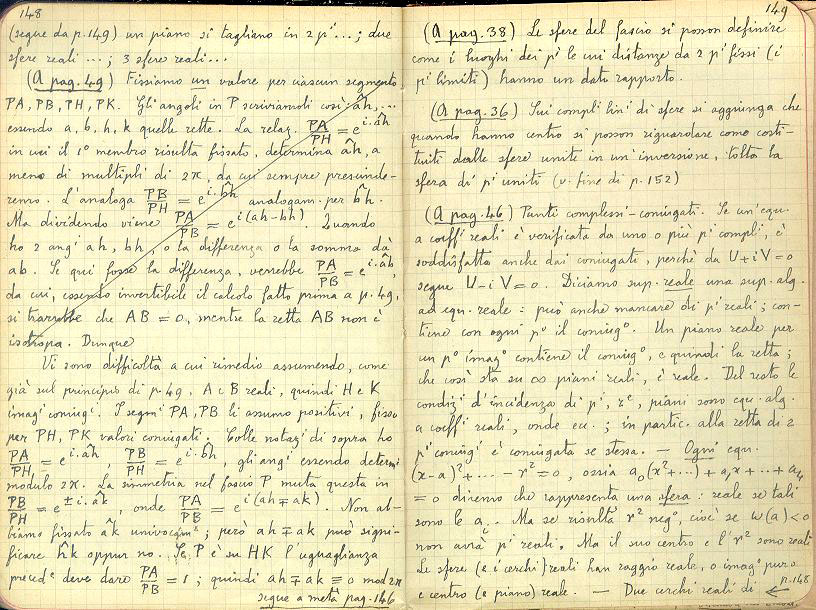 148
(segue da p. 149) un piano si tagliano in 2 pⁱ...; due
sfere reali ...; 3 sfere reali...
(A pag. 49) Fissiamo un valore per ciascun segmento
PA, PB, PH, PK. Gli angoli in P scriviamoli così: âh, ...
essendo a, b, h, k quelle rette. La relaz. PA/PH = e^{i.âh}
in cui il 1º membro risulta fissato, determina âh, a
meno di multipli di 2π, da cui sempre prescinde-
remo. L'analoga PB/PH = e^{i.b̂h} analogam. per b̂h.
Ma dividendo viene PA/PB = e^{i(ah-bh)}. Quando
ho 2 angⁱ ah, bh, o la differenza o la somma dà
ab. Se qui fosse la differenza, verrebbe PA/PB = e^{i.âb},
da cui, essendo invertibile il calcolo fatto prima a p. 49,
si trarrebbe che AB = 0, mentre la retta AB non è
isotropa. Dunque
Vi sono difficoltà a cui rimedio assumendo, come
già sul principio di p. 49, A e B reali, quindi H e K
imagⁱ coniugⁱ. I segmⁱ PA, PB li assumo positivi, fisso
per PH, PK valori coniugati. Colle notazⁱ di sopra ho
PA/PH = e^{i.âh} PB/PH = e^{i.b̂h}, gli angⁱ essendo determⁱ
modulo 2π. La simmetria nel fascio P muta questa in
PB/PH = e^{±i.âk}, onde PA/PB = e^{i(ah∓ak)}. Non ab-
biamo fissato âk univocamᵉ; però ah∓ak può signi-
ficare ĥk oppur no. Se P è su HK l'uguaglianza
precedᵉ deve dare PA/PB = 1; quindi ah∓ak ≡ 0 mod 2π
segue a metà pag. 146
149
(A pag. 38) Le sfere del fascio si posson definire
come i luoghi dei pⁱ le cui distanze da 2 pⁱ fissi (i
pⁱ limiti) hanno un dato rapporto.
(A pag. 36) Sui compli linⁱ di sfere si aggiunga che
quando hanno centro si posson riguardare come costi-
tuiti dalle sfere unite in un'inversione, tolta la
sfera di pⁱ uniti (v. fine di p. 152)
(A pag. 46) Punti complessi-coniugati. Se un'equ.
a coeffⁱ reali è verificata da uno o più pⁱ compli, è
soddisfatta anche dai coniugati, perchè da U+iV=0
segue U-iV=0. Diciamo sup. reale una sup. alg.
ad equ. reale: può anche mancare di pⁱ reali; con-
tiene con ogni pº il coniugº. Un piano reale per
un pº imagº contiene il coniugº, e quindi la retta;
che così sta su ∞ piani reali, è reale. Del resto le
condizⁱ d'incidenza di pⁱ, rᵉ, piani sono equ. alg.
a coeffⁱ reali, onde ecc.; in partic. alla retta di 2
pⁱ coniugⁱ è coniugata se stessa. — Ogni equ.
(x-a)²+...-r²=0, ossia a₀(x²+...)+a₁x+...+a₄
=0 diremo che rappresenta una sfera: reale se tali
sono le aᵢ. Ma se risulta r² negº, cioè se ω(a)<0
non avrà pⁱ reali. Ma il suo centro e l'r² sono reali
Le sfere (e i cerchi) reali han raggio reale, o imagº puro
e centro (e piano) reale. — Due cerchi reali di p. 148